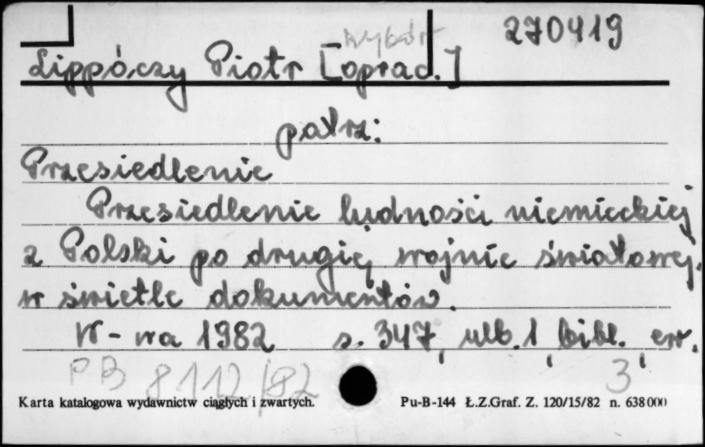 wybór 270419
Lippóczy Piotr [oprac.]
patrz:
Przesiedlenie
Przesiedlenie ludności niemieckiej
z Polski po drugiej wojnie światowej.
w świetle dokumentów.
W-wa 1982 s. 347, ulb. 1, bibl. err.
PB 8112/82 3
Karta katalogowa wydawnictw ciągłych i zwartych. Pu-B-144 Ł.Z.Graf. Z. 120/15/82 n. 638000